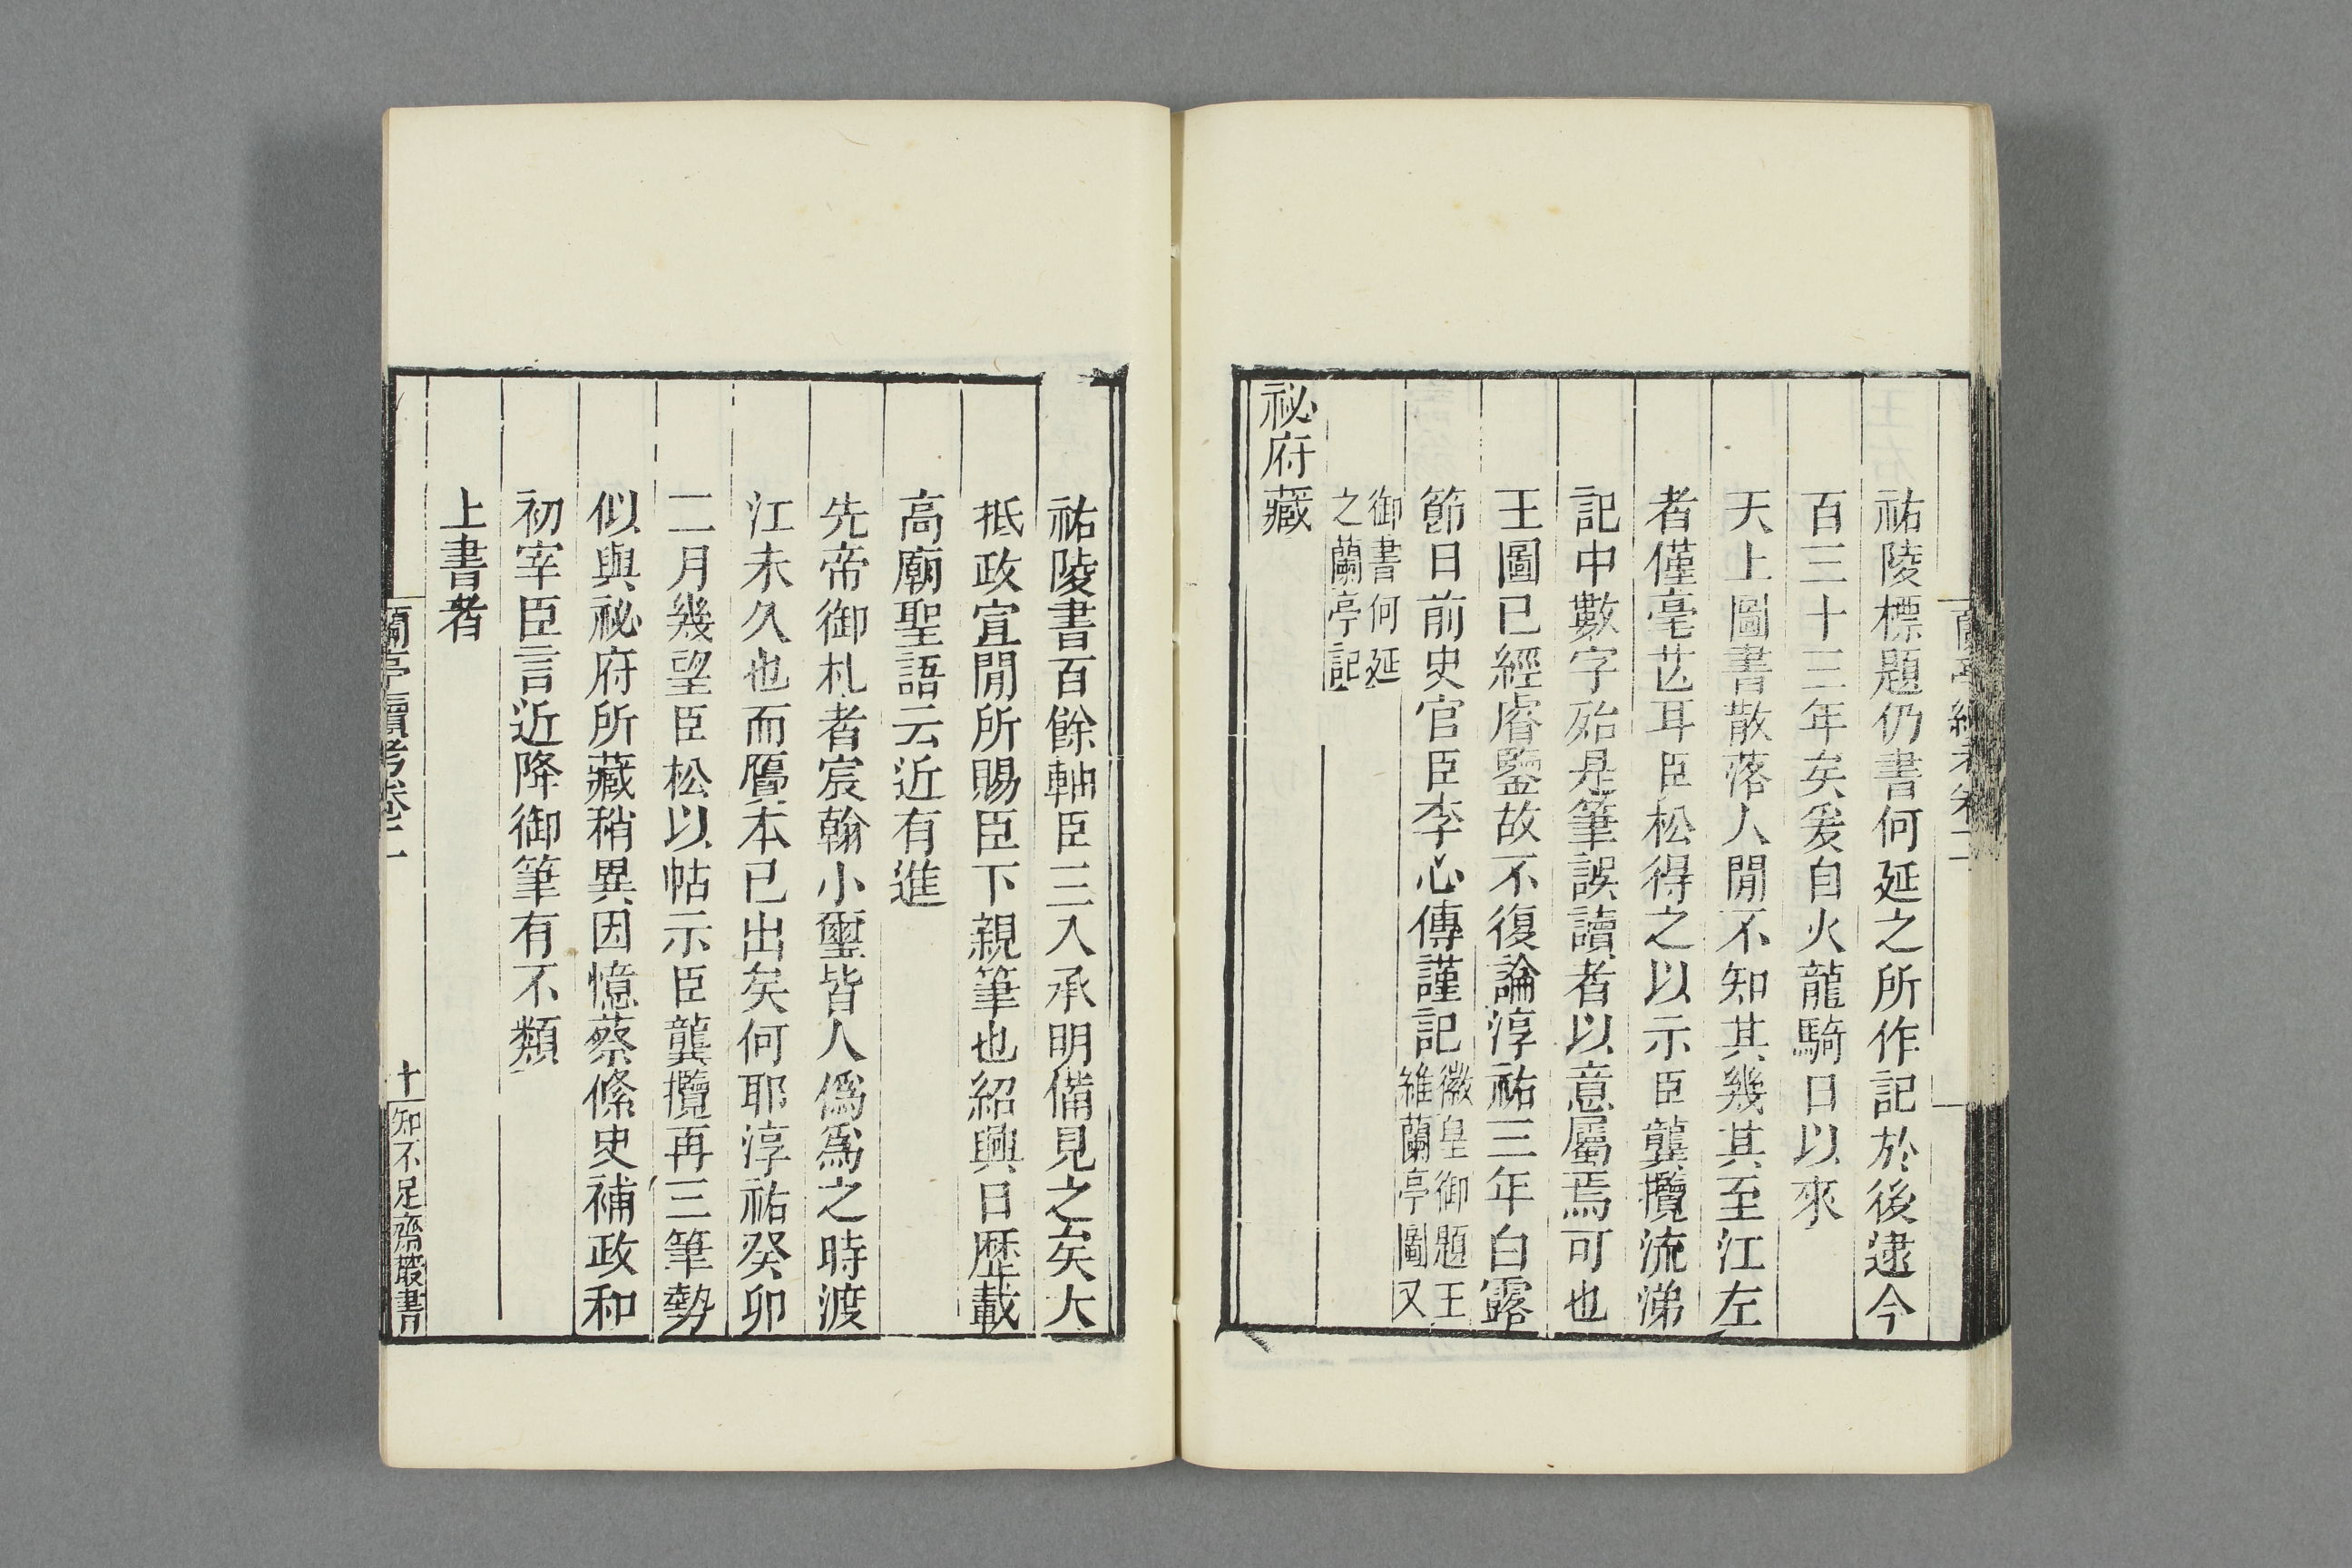 蘭亭續考卷二
祐陵標題仍書何延之所作記於後逮今
百三十三年矣爰自火龍騎日以來
天上圖書散落人閒不知其幾其至江左
者僅毫芒耳臣松得之以示臣龔攬流涕
記中數字殆是筆誤讀者以意屬焉可也
王圖已經睿鑒故不復論淳祐三年白露
節日前史官臣李心傳謹記徽皇御題王
維蘭亭圖又
御書何延
之蘭亭記
祕府藏
祐陵書百餘軸臣三入承明備見之矣大
抵政宣閒所賜臣下親筆也紹興日歷載
高廟聖語云近有進
先帝御札者宸翰小璽皆人偽爲之時渡
江未久也而贗本已出矣何耶淳祐癸卯
二月幾望臣松以帖示臣龔攬再三筆勢
似與祕府所藏稍異因憶蔡絛史補政和
初宰臣言近降御筆有不類
上書者
蘭亭續考卷二
十
知不足齋叢書